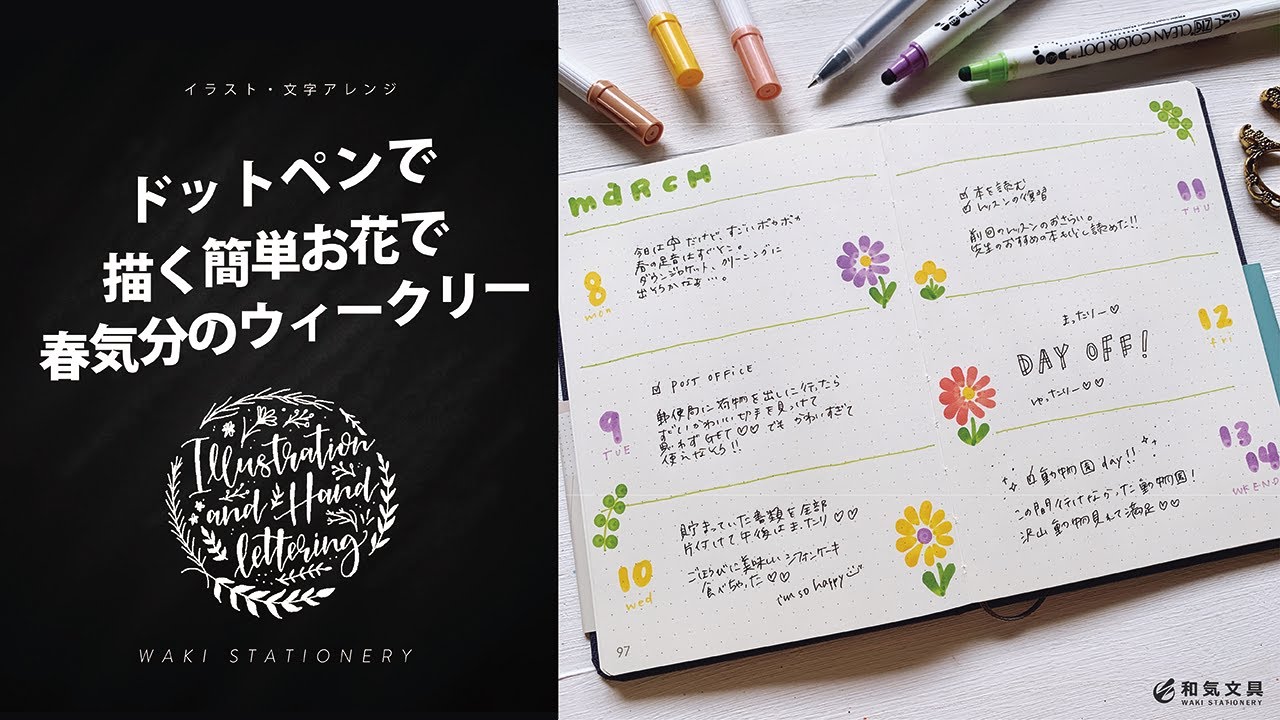 イラスト・文字アレンジ
ドットペンで
描く簡単お花で
春気分のウィークリー
Illustration
and Hand
lettering
WAKI STATIONERY
ZIG CLEAN COLOR DOT
MARCH
8
mon
今日は だけど、すごいポカポカ
春の足音はすぐそこ。
ダウンジャケット、クリーニングに
出そうかなぁ…。
9
TUE
POST OFFICE
郵便局に荷物を出しに行ったら
すごいかわいい切手を見つけて
思わずGET♡♡ でも かわいすぎて
使えなそう!!
10
wed
貯まっていた書類を全部
片付けて午後はまったり♡♡
ごほうびに美味しいシフォンケーキ
食べちゃった♡♡
i'm so happy
97
11
THU
本を読む
レッスンの復習
前回のレッスンのおさらい。
先生のおすすめの本も少し読めた!!
12
fri
まったりー♡
DAY OFF!
ゆったりー♡♡
13
14
WKEND
動物園 day!!
この間行けなかった動物園!
沢山動物見れて満足♡♡
和気文具
WAKI STATIONERY